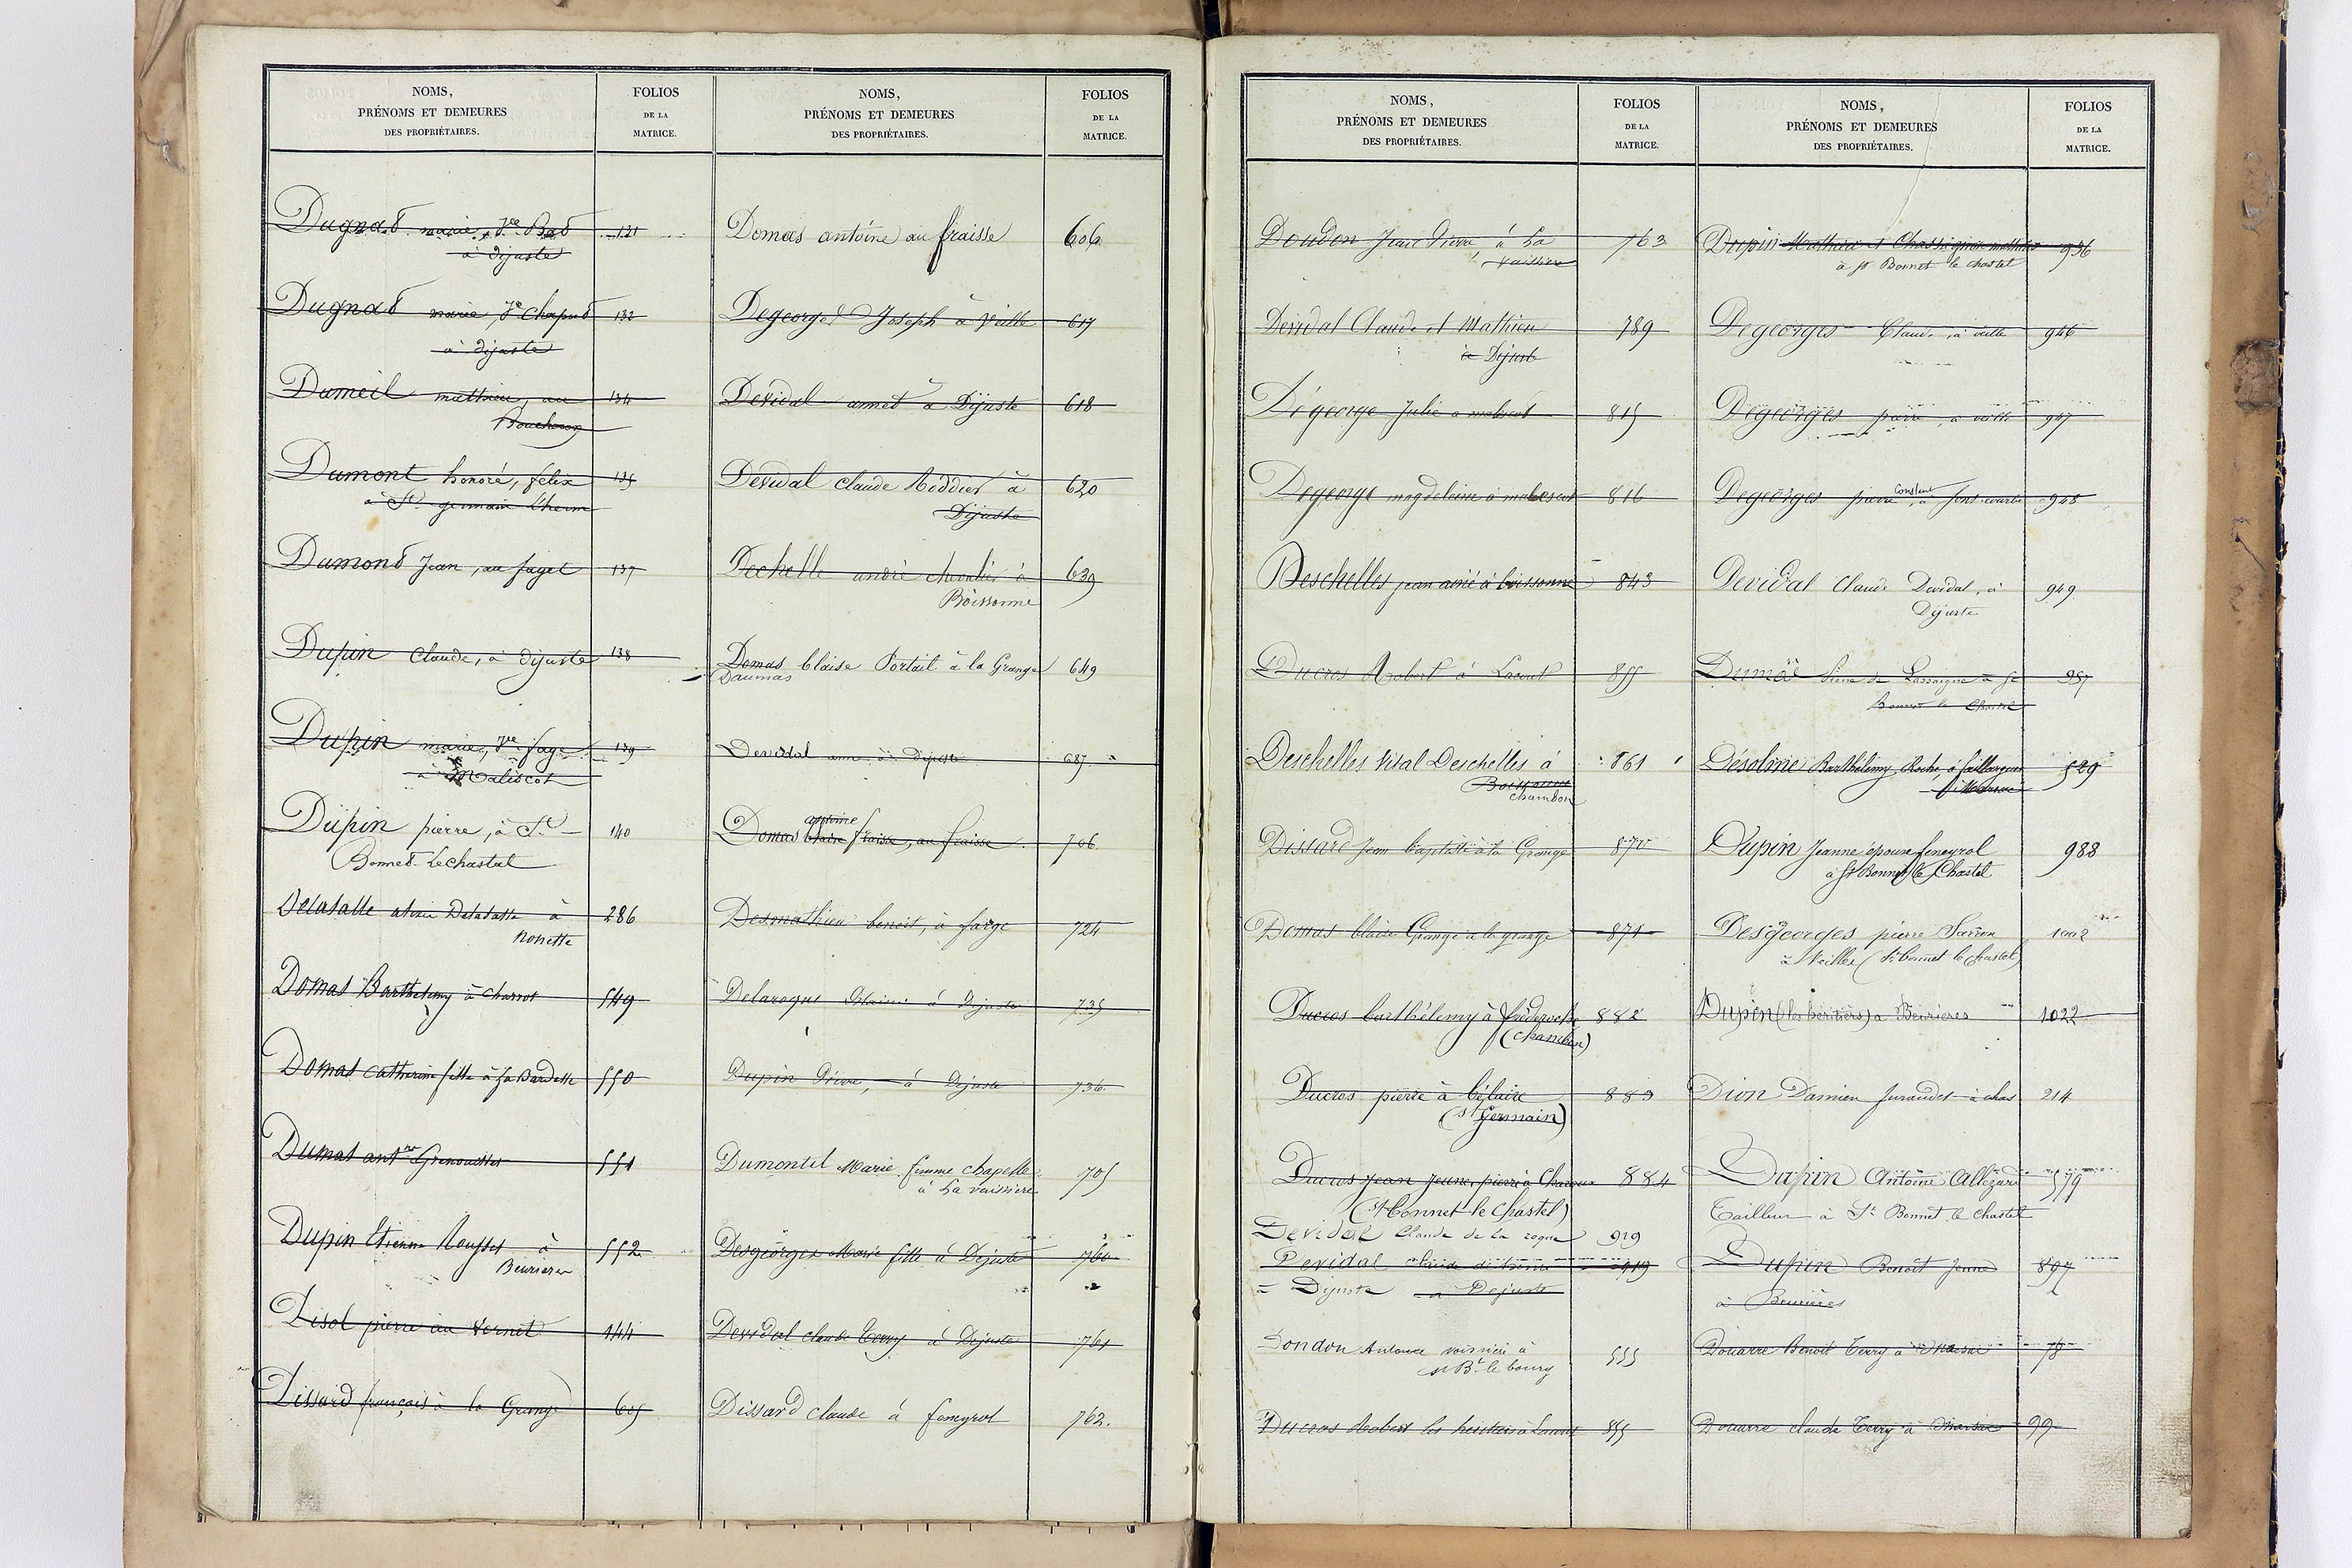 NOMS,
PRÉNOMS ET DEMEURES
DES PROPRIÉTAIRES.
FOLIOS
DE LA
MATRICE.
Dugnat marie, Ve Bat 121
à dijuste
Dugnat marie, Ve Chaput 132
à dijuste
Dumeil mathieu, au 134
Boucheron
Dumont honoré, felix 135
à St germain l'herm
Dumont Jean, au faget 137
Dupin Claude, à dijuste 138
Dupin marie, Ve fage 139
à Maliscot
Dupin pierre, à St 140
Bonnet Lechastel
Delasalle Delasalle à 286
Nonette
Domas Barthelemy à Charrot 549
Domas Catherine fille à La Bardette 550
Dumas antne Grenouillet 551
Dupin Etienne Rousset à 552
Beurieres
Disol pierre au Vernet 144
Dissard françois à la Grange 605
NOMS,
PRÉNOMS ET DEMEURES
DES PROPRIÉTAIRES.
FOLIOS
DE LA
MATRICE.
Domas antoine au fraisse 606
Degeorges Joseph à Veille 617
Devidal annet à Dijuste 618
Devidal claude Roddier à 620
Dijuste
Dechelle andré chevalier à 639
Boissonne
Domas blaise Portail à la Grange 649
Daumas
Devidal à dijuste 687
antoine
Domas blaise fraisse, au fraisse 706
Desmathieu benoit, à farge 724
Delaroque à Dijuste 735
Dupin Pierre, à Dijuste 736
Dumontel Marie femme chapelle 705
à La vaissiere
Desgeorges Marie fille à Dejuste 760
Devidal claude Terry à Dejuste 761
Dissard claude à feneyrol 762.
NOMS,
PRÉNOMS ET DEMEURES
DES PROPRIÉTAIRES.
FOLIOS
DE LA
MATRICE.
Doudon Jean Pierre à La 763
vaissiere
Devidal Claude et Mathieu 789
à Dijust
Dégeorge Julie à malescot 815
Degeorge magdeleine à malescot 816
Deschelles jean ainé à boissonne 843
Ducros Robert à Lacout 855
Deschelles Vital Deschelles à 861
Boissonne
Chambon
Dissard Jean baptiste à la Grange 870
Domas blaise Grange à la grange 871
Ducros barthélemy à fréderoche 882
(Chambon)
Ducros pierre à bélaire 883
(St Germain)
Ducros Jean Jeune, pierre à 884
(St bonnet le Chastel)
Devidal Claude de la roque 919
Devidal 919
à Dijuste à Dejuste
Dondon Antoine voissière à 555
st Bt le bourg
Ducros Robert les héritiers à Lacout 855
NOMS,
PRÉNOMS ET DEMEURES
DES PROPRIÉTAIRES.
FOLIOS
DE LA
MATRICE.
Dupin Mathieu et Chassignion mathieu 936
à st Bonnet le chastel
Degeorges Claude, à veille 946
Degeorges pierre, à veille 947
Constant
Degeorges pierre à font-courbe 948
Devidal Claude Devidal, à 949
Dijuste
Dumas de Lassaigne à St 957
Bonnet le Chastel
Désolme Barthélemy Roche, à 529
Dupin Jeanne épouse feneyrol 988
à St Bonnet le Chastel
Desgeorges pierre Sarron 1002
à Veilles (St bonnet le Chastel)
Dupin (les héritiers) à Beurieres 1022
Dion Damien Juraudet à chas 214
Dupin Antoine Allezard 579
Tailleur à St Bonnet le Chastel
Dupin Benoît Jeune 897
à Beurières
Douarre Benoit Terry à Marsac 78
Douarre claude Terry à Marsac 99